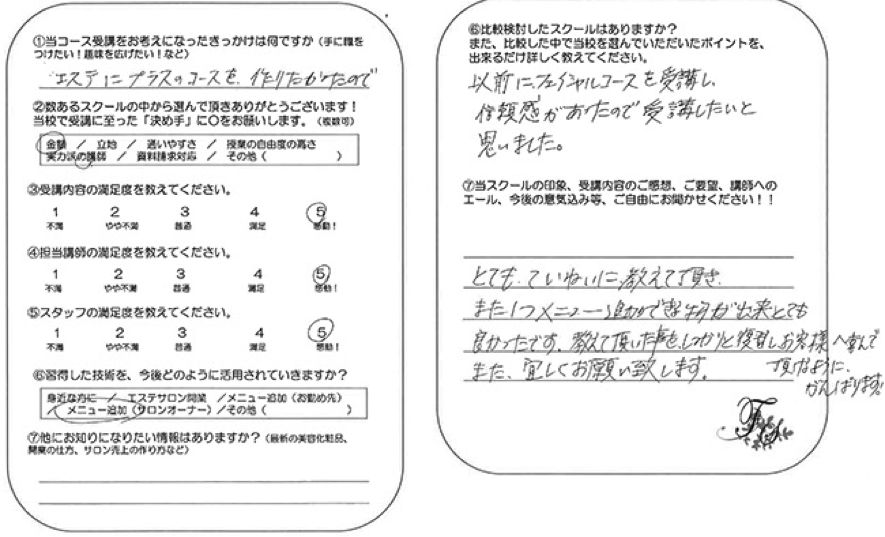 ①当コース受講をお考えになったきっかけは何ですか（手に職を
つけたい！趣味を広げたい！など）
エステにプラスのコースを、作りたかったので
②数あるスクールの中から選んで頂きありがとうございます！
当校で受講に至った「決め手」に〇をお願いします。（複数可）
金額 ／ 立地 ／ 通いやすさ ／ 授業の自由度の高さ
実力派の講師 ／ 資料請求対応 ／ その他（ ）
③受講内容の満足度を教えてください。
1 2 3 4 5
不満 やや不満 普通 満足 感動！
④担当講師の満足度を教えてください。
1 2 3 4 5
不満 やや不満 普通 満足 感動！
⑤スタッフの満足度を教えてください。
1 2 3 4 5
不満 やや不満 普通 満足 感動！
⑥習得した技術を、今後どのように活用されていきますか？
身近な方に ／ エステサロン開業 ／メニュー追加（お勤め先）
／ メニュー追加（サロンオーナー）／その他（ ）
⑦他にお知りになりたい情報はありますか？（最新の美容化粧品、
開業の仕方、サロン売上の作り方など）
⑥比較検討したスクールはありますか？
また、比較した中で当校を選んでいただいたポイントを、
出来るだけ詳しく教えてください。
以前にフェイシャルコースを受講し、
信頼感があったので受講したいと
思いました。
⑦当スクールの印象、受講内容のご感想、ご要望、講師への
エール、今後の意気込み等、ご自由にお聞かせください！！
とても、ていねいに教えて頂き、
また1つメニュー追加が出来とても
良かったです。教えて頂いた事を、しっかりと復習しお客様へ喜んで
頂けるように、
がんばります!
また、宜しくお願い致します。